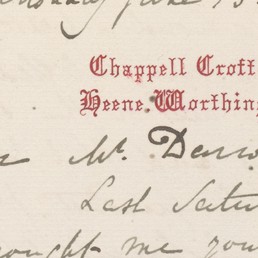 June 13
Chappell Croft
Heene. Worthing
Mr. Darw
Last Satu
ought me you